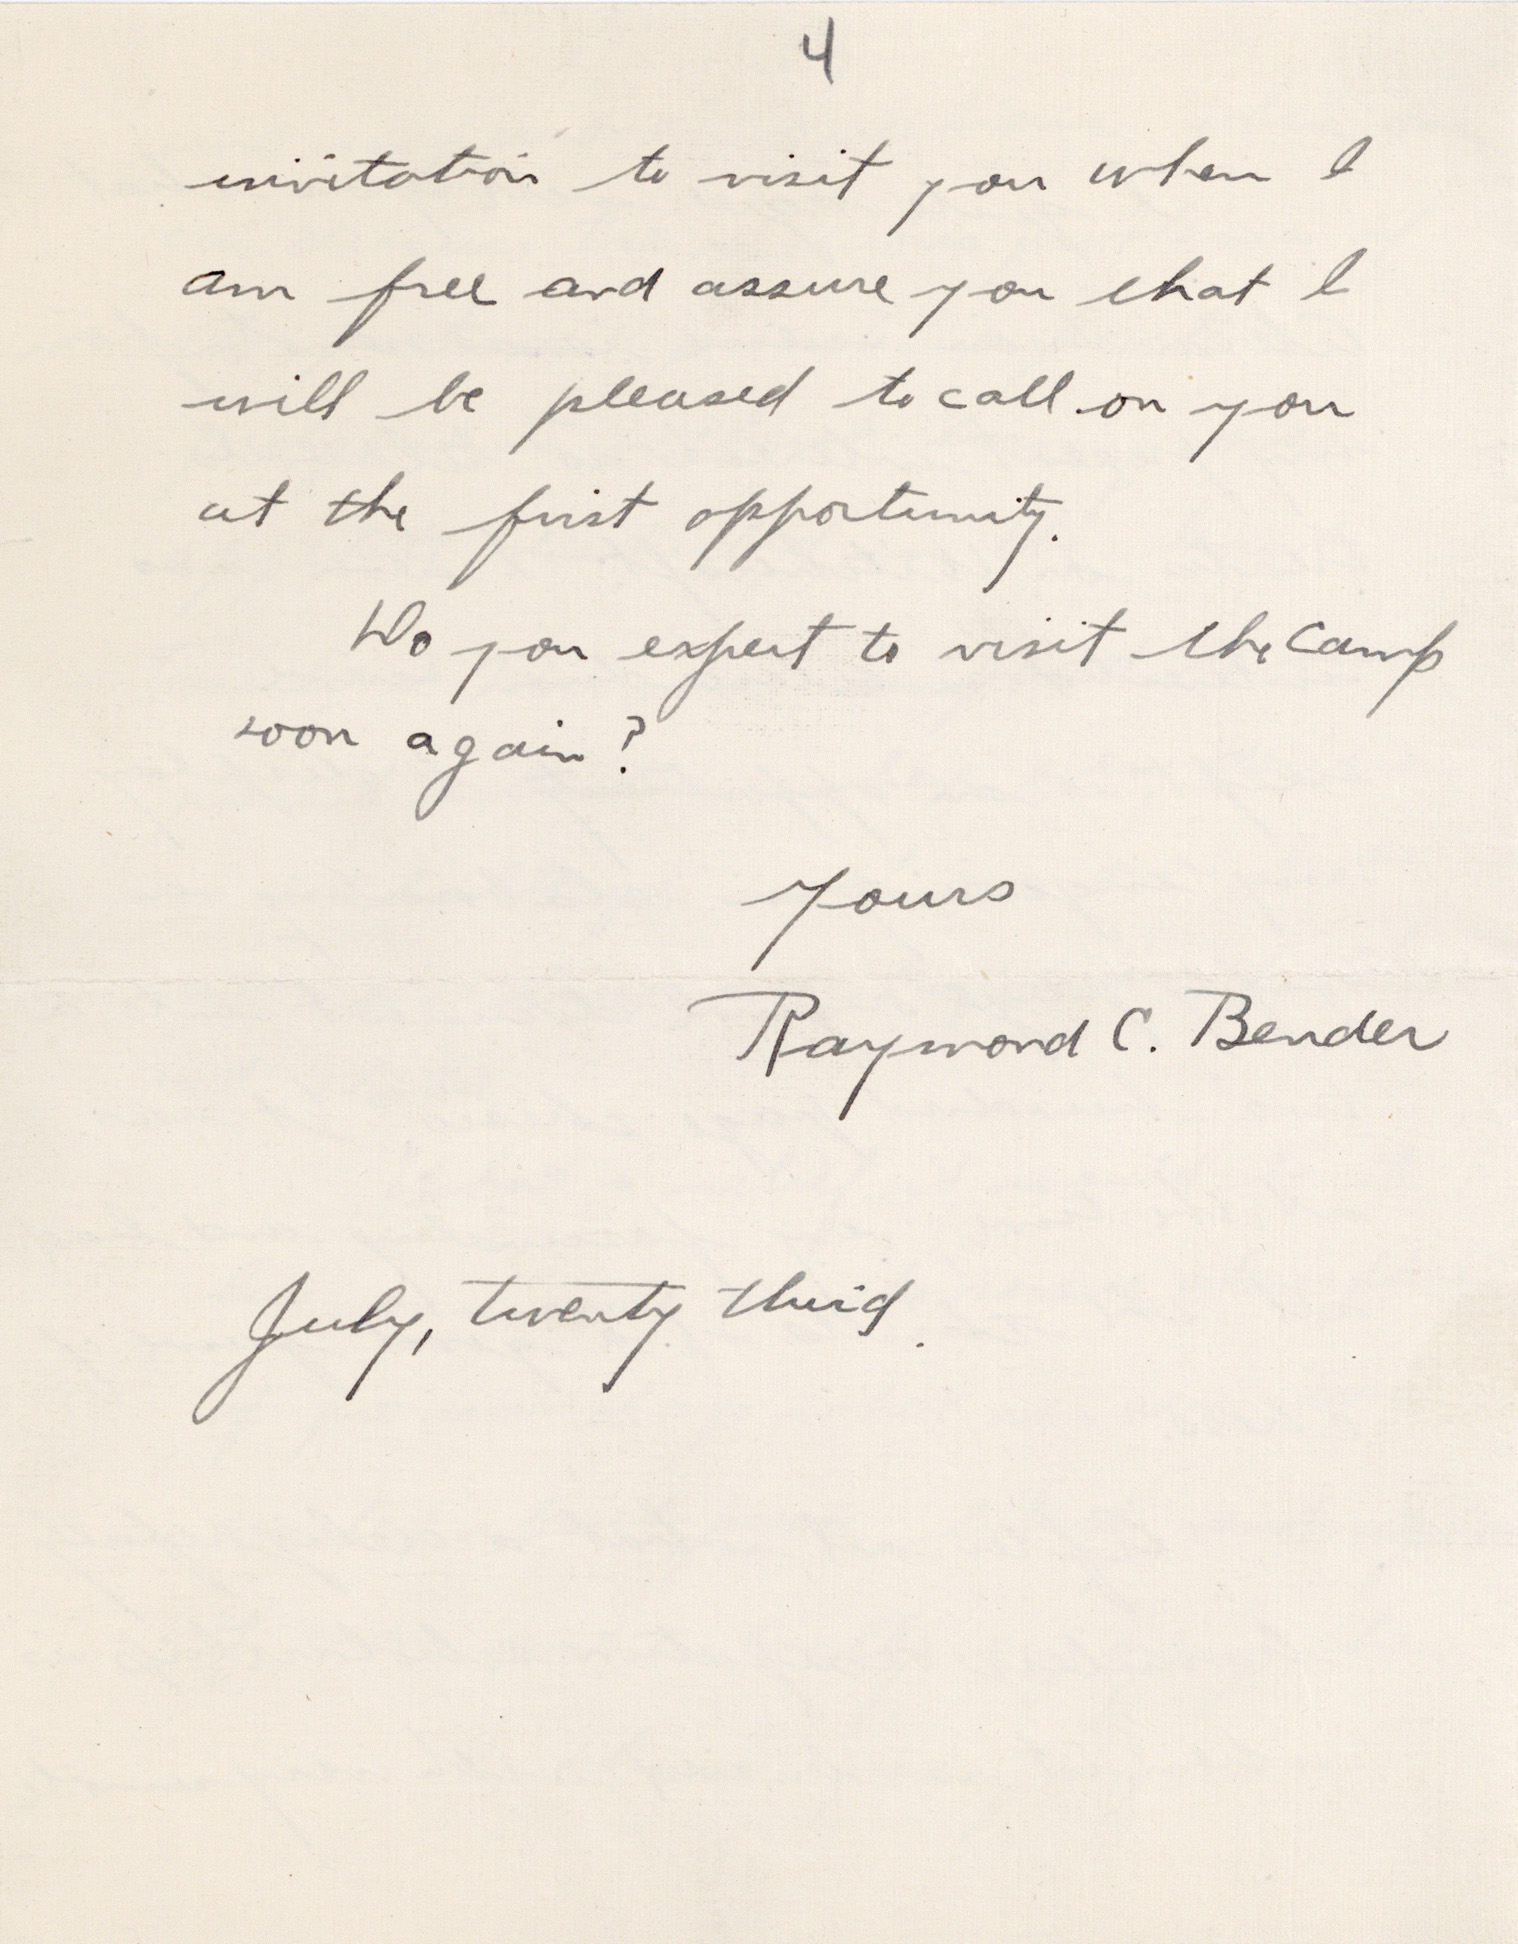 4
invitation to visit you when I
am free and assure you that I
will be pleased to call on you
at the first opportunity.
Do you expect to visit the Camp
soon again?
Yours
Raymond C. Bender
July, twenty third.